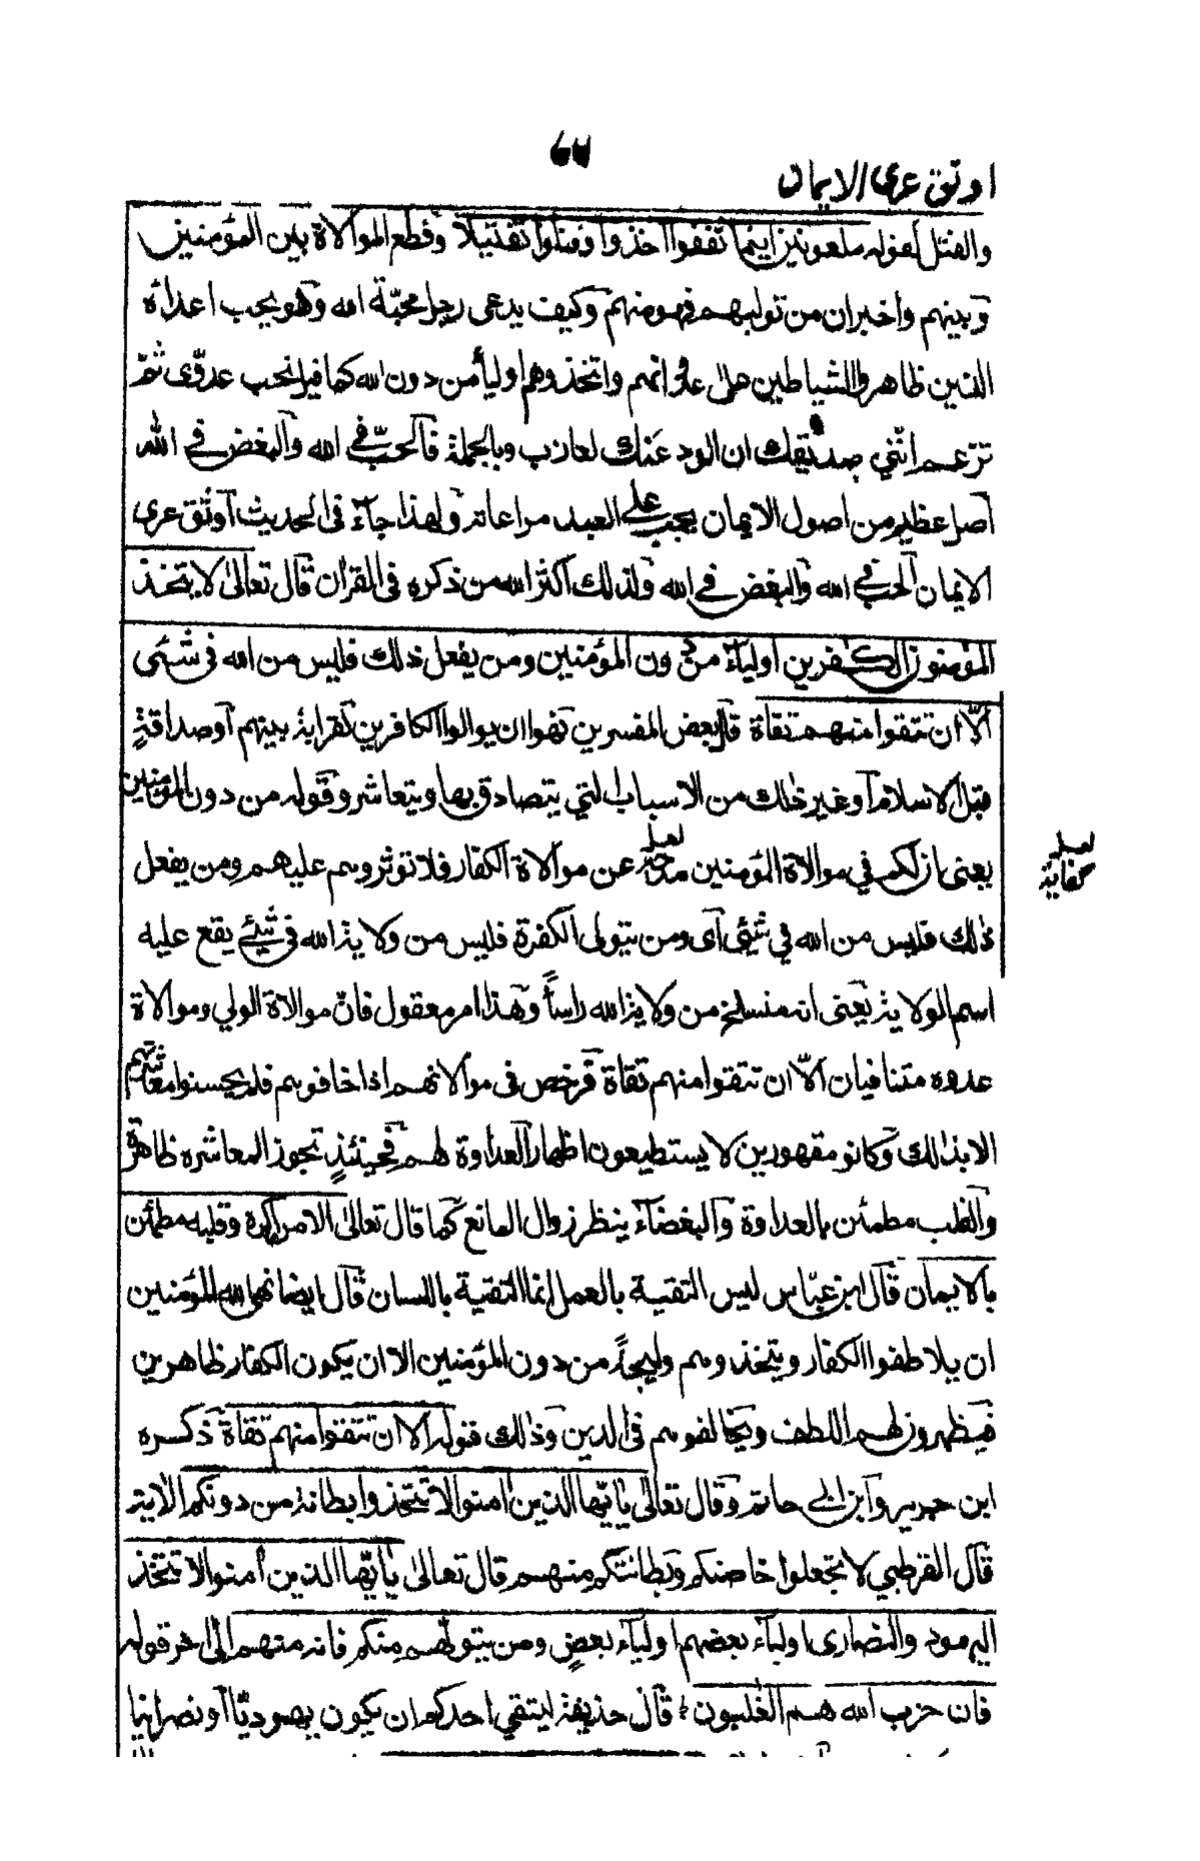 ٦٧
اوثق عرى الايمان
والقتل لقوله ملعونين اينما ثقفوا اخذوا وقتلوا تقتيلا وقطع الموالاة بين المؤمنين
وبينهم واخبر ان من تولهم فهو منهم وكيف يدعى رجل محبّة الله وهو يحب اعدائه
الذين ظاهروا الشياطين على واتخذوهم اوليأ من دون الله كما قيل تحب عدوّى ثمّ
تزعم انّني صديقك ان الود عنك لعازب وبالجملة فالحبّ في الله والبغض في الله
اصل عظيم من اصول الايمان يجب على العبد مراعاته ولهذا جآء فى الحديث اوثق عرى
الايمان الحب في الله والبغض في الله ولذلك اكثر الله من ذكره فى القران قال تعالى لا يتخذ
المؤمنون الكفرين اوليآء من دون المؤمنين ومن يفعل ذلك فليس من الله فى شئى
الّا ان تتقوا منهم تقاة قال بعض المفسرين نهوا ان يوالوا الكافرين لقرابة بينهم او صداقةٍ
قبل الاسلام او غير ذلك من الاسباب التي يتصادق بها ويتعاشر وقوله من دون المؤمنين
يعنى ان لكم في موالاة المؤمنين مندوحة لعله عن موالاة الكفار فلا توثروهم عليهم ومن يفعل
لعله
كفاية
ذلك فليس من الله في شئى اى ومن يتولى الكفرة فليس من ولاية الله فى شئي يقع عليه
اسم الولاية يعنى انه منسلخ من ولاية الله راساً وهذا امر معقول فانّ موالاة الولي وموالاة
عدوه متنافيان الّا ان تتقوا منهم تقاة فرخص فى موالاتهم اذا خافوهم فلم يحسنوا معاشرتهم
الا بذالك وكانو مقهورين لا يستطيعون اظهار العداوة لهم فحينئذٍ تجوز المعاشره ظاهرة
والقلب مطمئن بالعداوة والبغضآء ينظر زوال المانع كما قال تعالى الا من اكره وقلبه مطمئن
بالايمان قال ابن عبّاس ليس التقية بالعمل انما التقية باللسان قال ايضا نهى الله المؤمنين
ان يلاطفوا الكفار ويتخذوهم وليجةً من دون المؤمنين الا ان يكون الكفار ظاهرين
فيظهرون لهم اللطف ويخالفوهم فى الدين وذالك قوله الا ان تتقوا منهم تقاة ذكره
ابن جرير وابن ابي حاتم وقال تعالى يا ايّها الذين امنوا لا تتخذوا بطانة من دونكم الاية
قال القرطبي لا تجعلوا خاصتكم وبطانتكم منهم قال تعالى يا ايّها الذين امنوا لا تتخذ
اليهود والنصارى اوليآء بعضهم اوليآء بعضٍ ومن يتولّهم منكم فانه منهم الى اخر قوله
فان حزب الله هم الغلبون قال حذيفة ليتقي احدكم ان يكون يهوديّا او نصرانيا